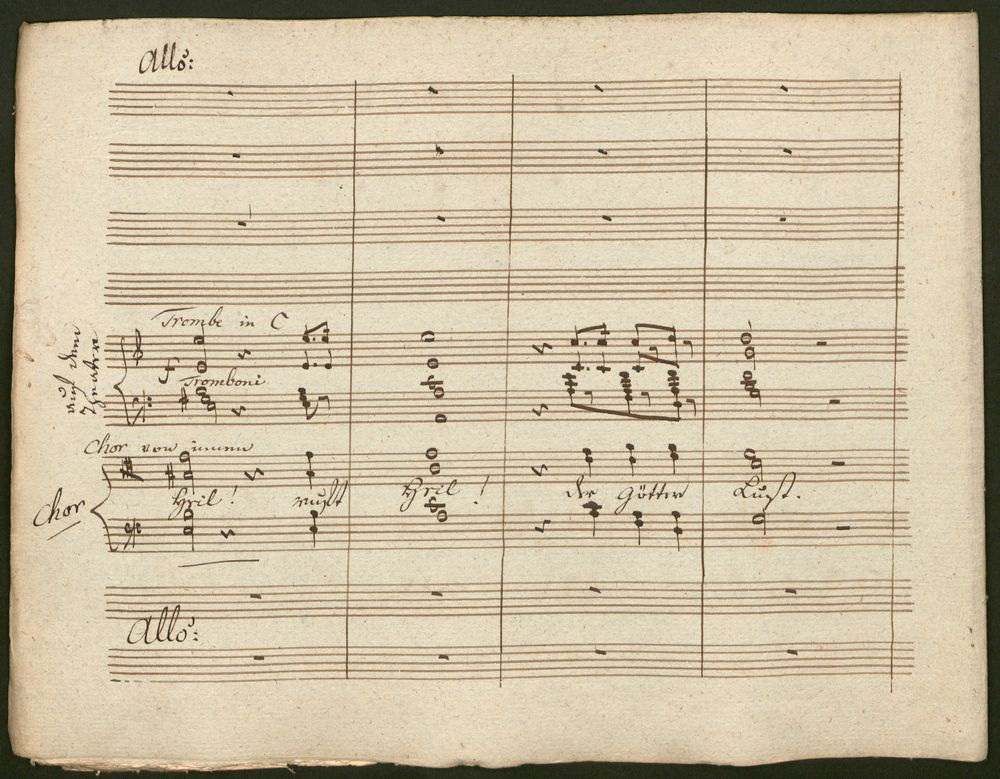 Allo:
Trombe in C
auf dem
Theatre
Tromboni
Chor von innen
Chor
Heil! ruft Heil! der Götter Lust.
Allo: